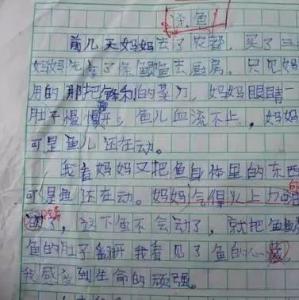 杀鱼
前几天妈妈去了农都，买了三
妈妈先拿了条鱼去厨房。只见妈
用的那把锋利的菜刀，妈妈眼睛一
肚子慢慢，鱼儿血流不止，妈妈
可是鱼儿还在动。
我看妈妈又把鱼身体里的东西
可是鱼还在动。妈妈气得火上
，这下鱼不会动了，就把鱼
鱼的肚子翻开我看见了鱼的心
我感受到生命的顽强。